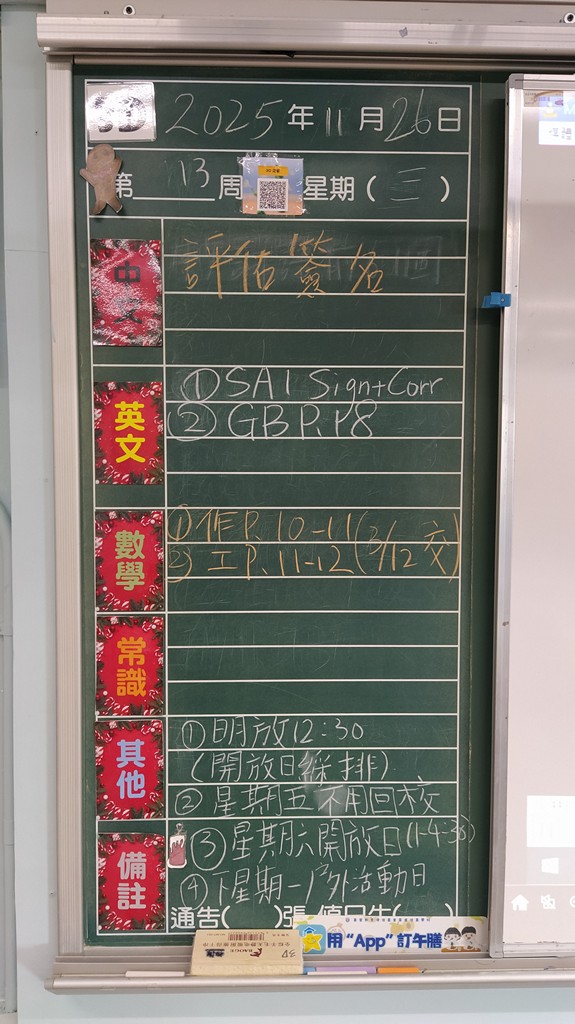 3D 2025年11月26日
第 13 周 星期(三)
中文
評估簽名
英文
①SA1 Sign+Corr
②GB P.18
數學
①作P.10-11(3/12交)
②工P.11-12
常識
其他
①明放12:30
(開放日綵排)
②星期五不用回校
備註
③星期六開放日(1-4:30)
④下星期一戶外活動日
通告( )張 值日生( )
用“App”訂午膳
3D